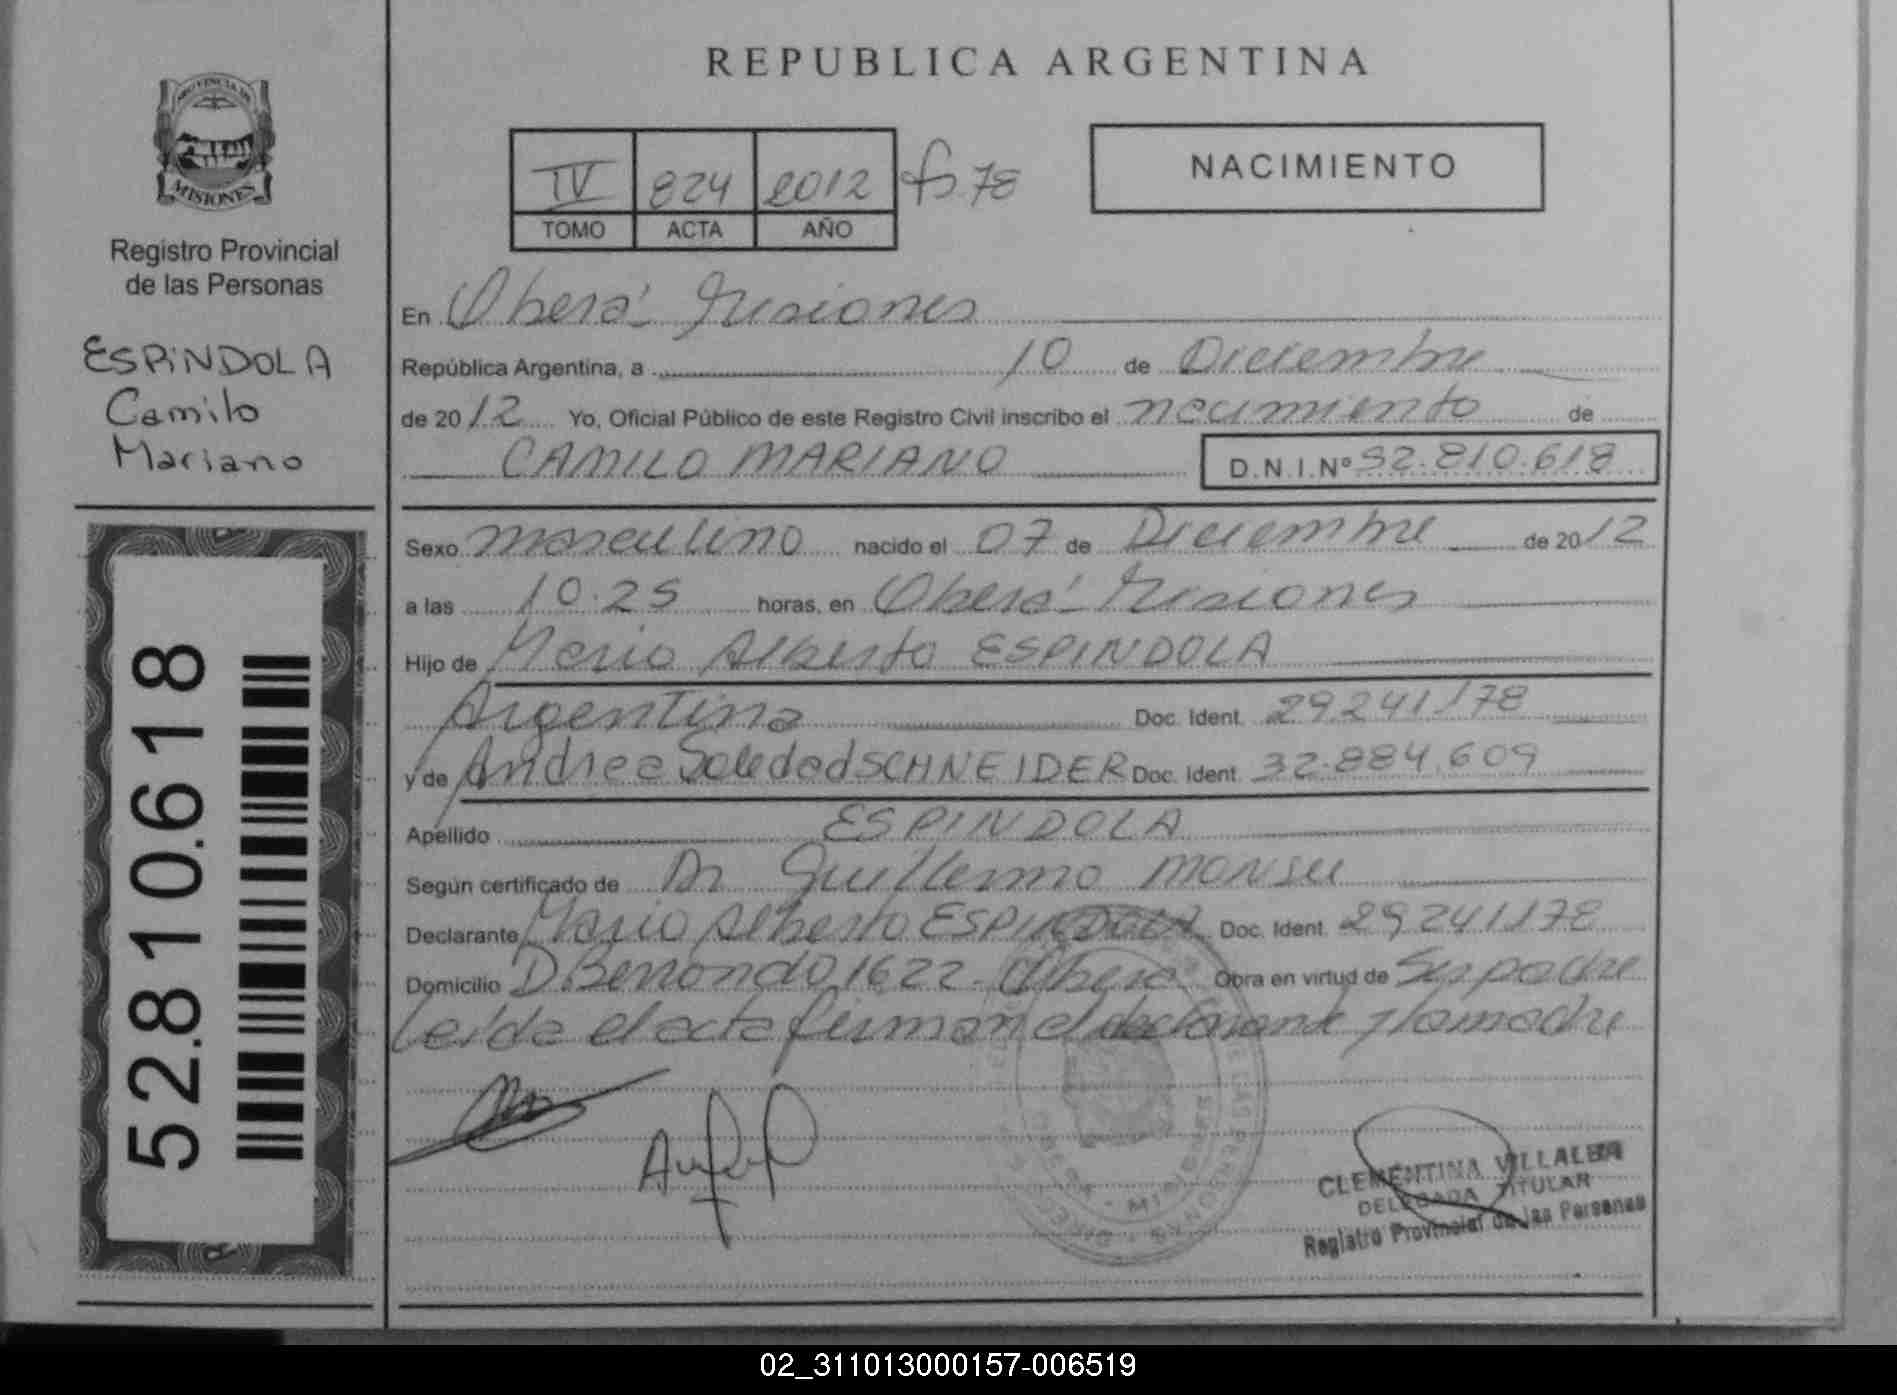 REPUBLICA ARGENTINA
PROVINCIA DE
MISIONES
Registro Provincial
de las Personas
ESPINDOLA
Camilo
Mariano
52.810.618
IV 824 2012 fs. 78
TOMO ACTA AÑO
NACIMIENTO
En Oberá - Misiones
República Argentina, a 10 de Diciembre
de 2012 Yo, Oficial Público de este Registro Civil inscribo el nacimiento de
CAMILO MARIANO D.N.I.Nº 52.810.618
Sexo masculino nacido el 07 de Diciembre de 2012
a las 10.25 horas, en Oberá - Misiones
Hijo de Mario Alberto ESPINDOLA
Argentina Doc. Ident. 29.241.178
y de Andrea Soledad SCHNEIDER Doc. Ident. 32.884.609
Apellido ESPINDOLA
Según certificado de Dr Guillermo MONSU
Declarante Mario Alberto ESPINDOLA Doc. Ident. 29.241.178
Domicilio D. Berrondo 1622 - Oberá Obra en virtud de Ser padre
Leída el acta firman el declarante y la madre
CLEMENTINA VILLALBA
DELEGADA TITULAR
Registro Provincial de las Personas
02_311013000157-006519